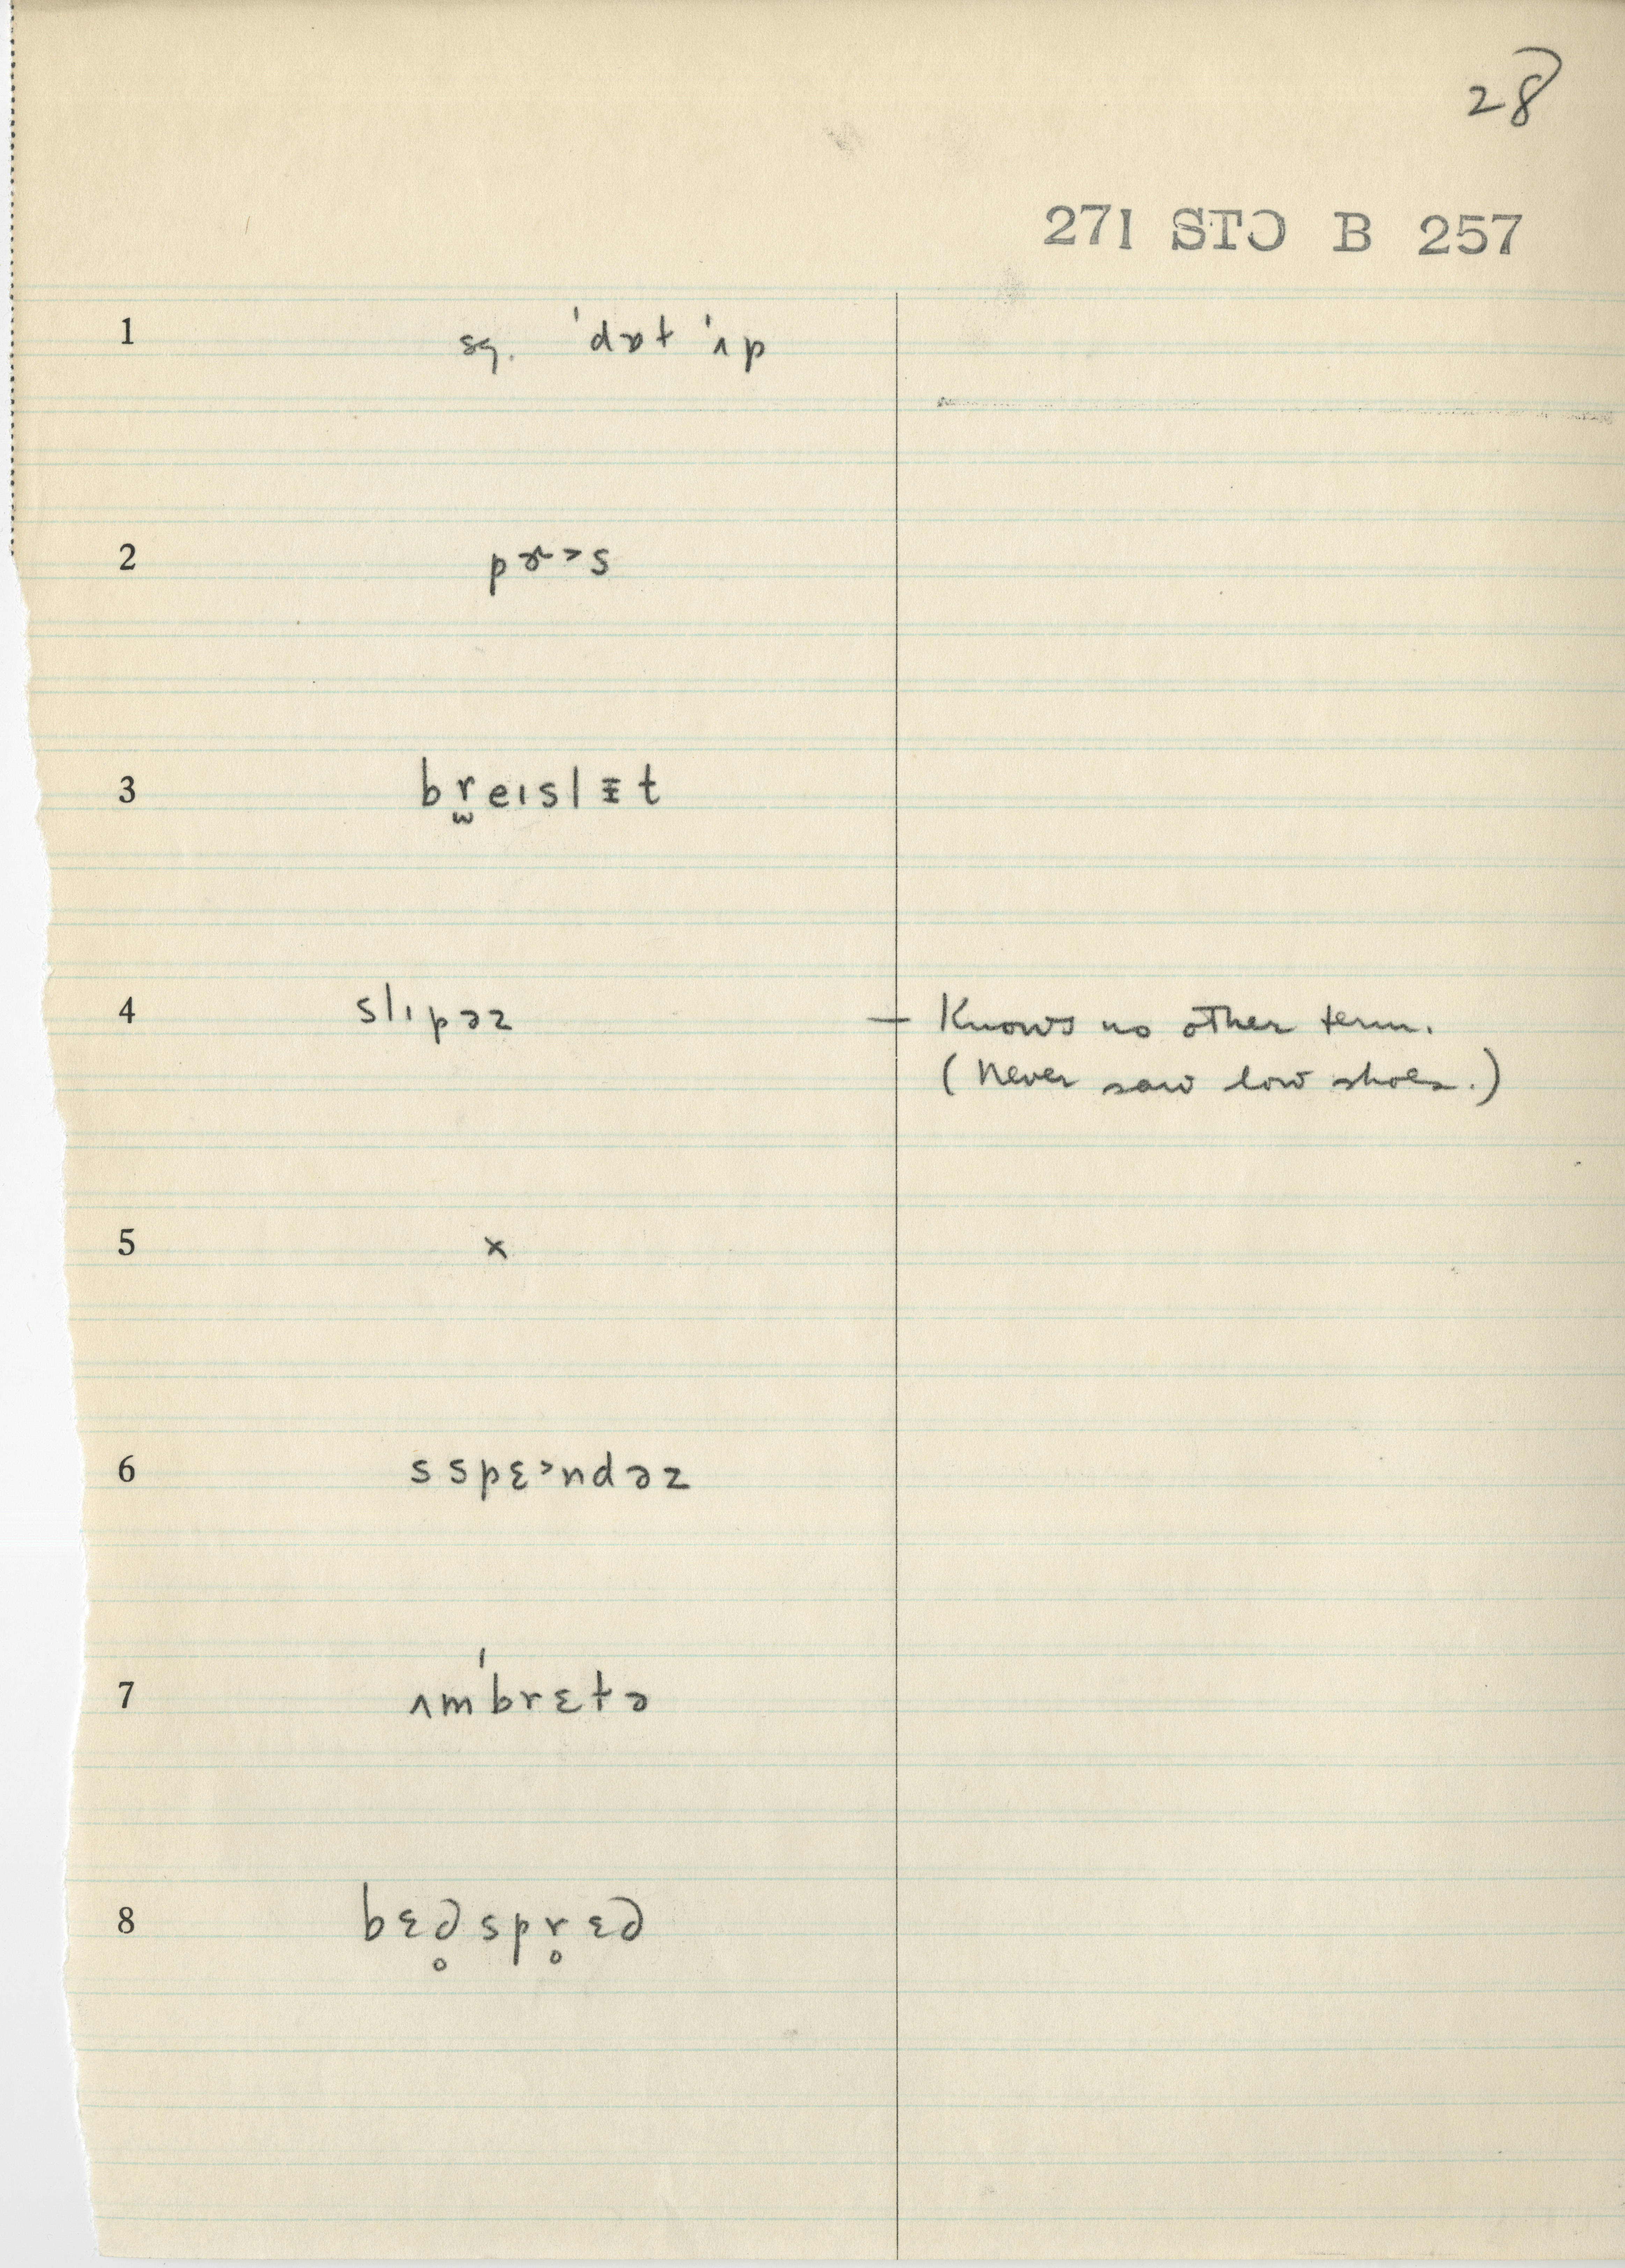 28
271 STƆ B 257
1 sg. ˈdɒt ˈʌp
2 pɝ˃s
3 br̫eɪslᵻt
4 slɪpəz — Knows no other term.
(Never saw low shoes.)
5 x
6 sspɛ˃ndəz
7 ʌmˈbrɛtə
8 bɛd̥spr̥ɛd